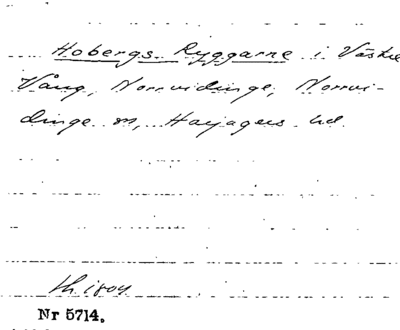 Hobergs Ryggarne i Västra
Vång, Norrvidinge, Norrvi-
dinge sn, Harjagers hd.
th 1804
Nr 5714.